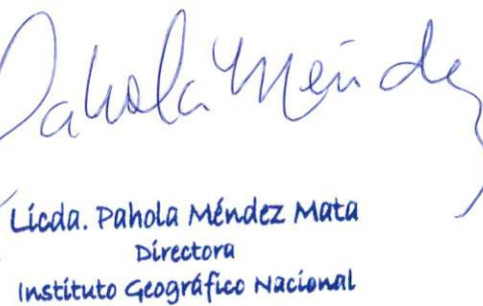 Pahola Méndez
Licda. Pahola Méndez Mata
Directora
Instituto Geográfico Nacional